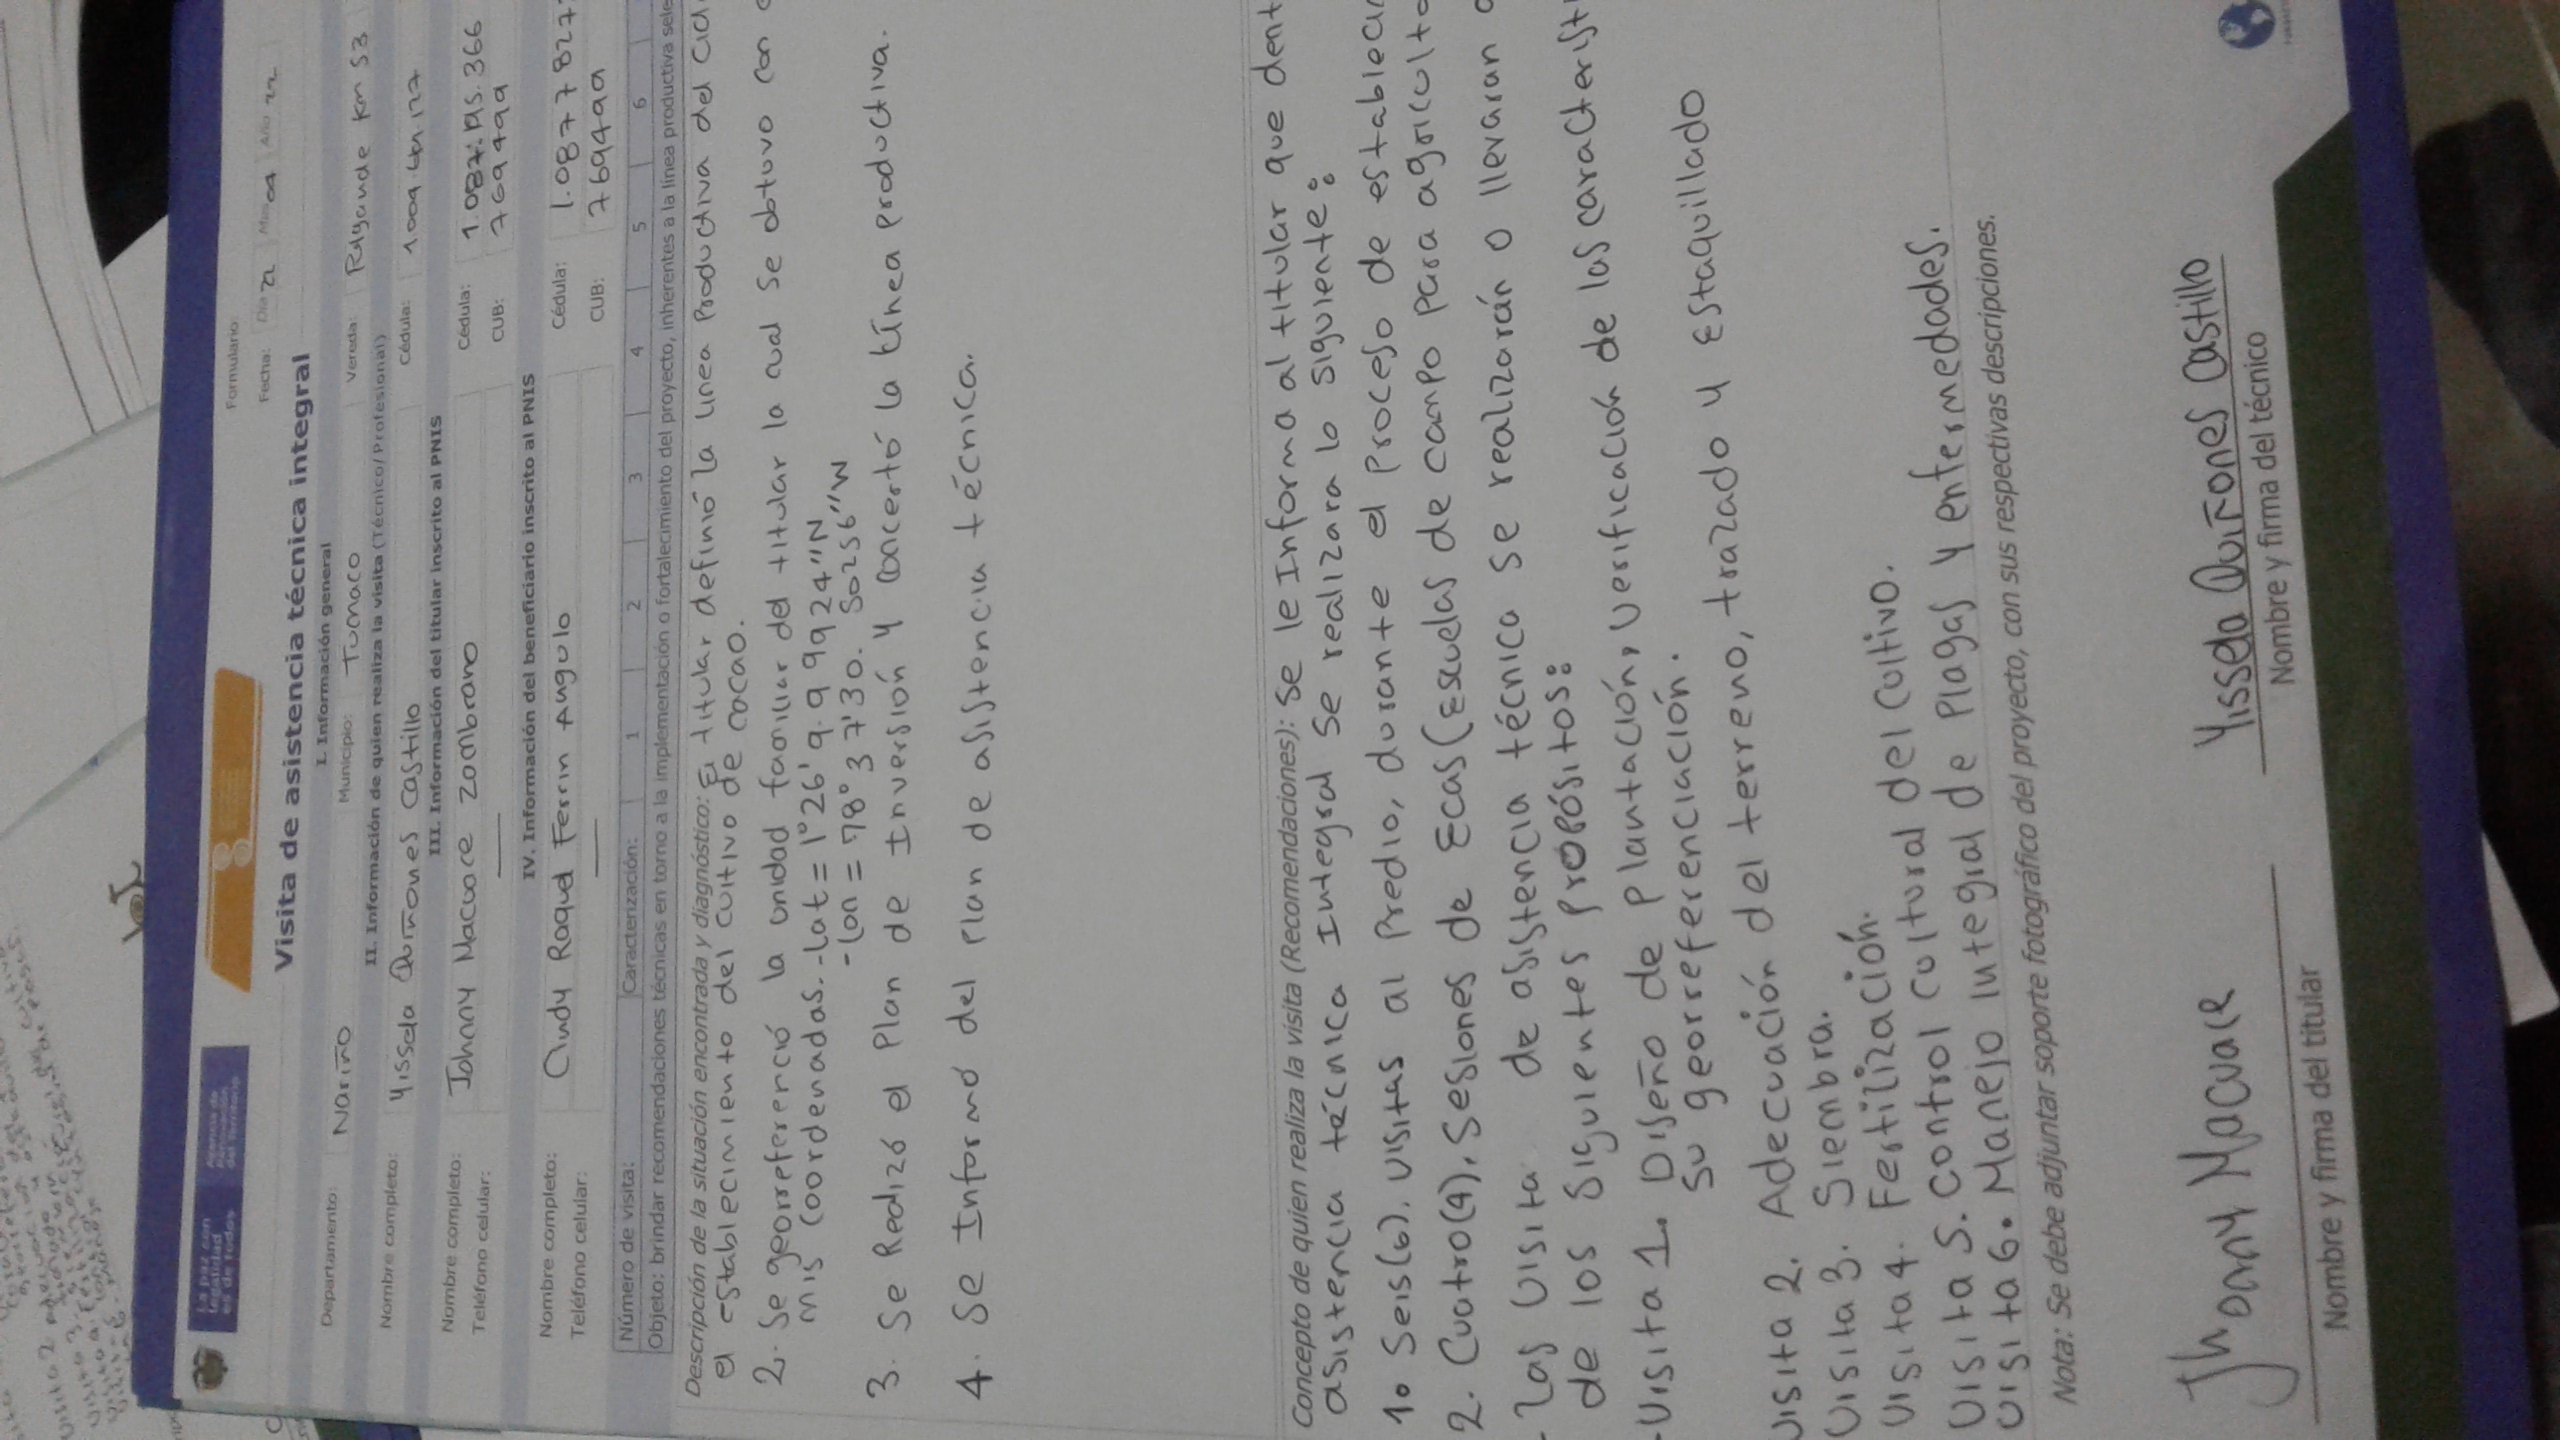 La paz con
legalidad
es de todos
Agencia de
Renovación
del Territorio
Formulario:
Visita de asistencia técnica integral
Fecha: Día 22 Mes 09 Año 22
I. Información general
Departamento: Nariño Municipio: Tumaco Vereda: km 53
II. Información de quien realiza la visita (Técnico/Profesional)
Nombre completo: Yissela Quiñones Castillo Cédula:
III. Información del titular inscrito al PNIS
Nombre completo: Johnny Macuace Zambrano Cédula:
Teléfono celular: — CUB: 769499
IV. Información del beneficiario inscrito al PNIS
Nombre completo: Cindy Raquel Ferrin Angulo Cédula: 1.08777827
Teléfono celular: — CUB: 769499
Número de visita: Caracterización: 1 2 3 4 5 6
Objeto: brindar recomendaciones técnicas en torno a la implementación o fortalecimiento del proyecto, inherentes a la línea productiva sele
Descripción de la situación encontrada y diagnóstico: El titular definió la linea Productiva del
el establecimiento del cultivo de cacao.
2. Se georreferenció la unidad familiar del titular la cual se obtuvo con
mis coordenadas. -Lat = 1°26'9.99924"N
-Lon = 78°37'30.50256"W
3. Se Realizó el Plan de Inversión y concertó la línea productiva.
4. Se Informó del Plan de asistencia técnica.
Concepto de quien realiza la visita (Recomendaciones): Se le Informa al titular que dent
asistencia técnica Integral se realizara lo siguiente:
1. Seis(6). visitas al Predio, durante el Proceso de establecim
2. Cuatro(4), sesiones de Ecas(Escuelas de campo para agriculto
- Las visita de asistencia técnica se realizarán o llevaran a
de los siguientes Propósitos:
- Visita 1. Diseño de plantación, verificación de las caracteristi
su georreferenciación.
Visita 2. Adecuación del terreno, trazado y Estaquillado
Visita 3. Siembra.
Visita 4. Fertilización.
Visita 5. Control Cultural del Cultivo.
Visita 6. Manejo Integral de Plagas y enfermedades.
Nota: Se debe adjuntar soporte fotográfico del proyecto, con sus respectivas descripciones.
Jhonny Macuace
Nombre y firma del titular
Yissela Quiñones Castillo
Nombre y firma del técnico